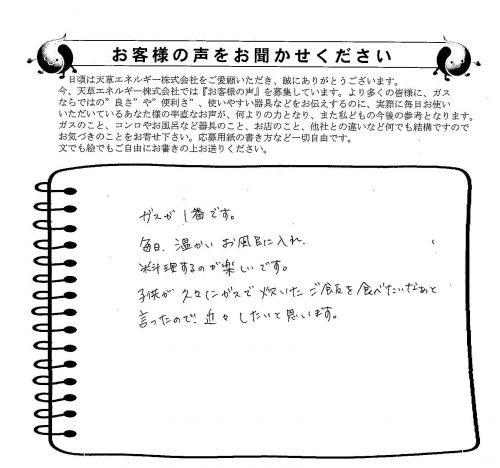 お客様の声をお聞かせください
日頃は天草エネルギー株式会社をご愛顧いただき、誠にありがとうございます。
今、天草エネルギー株式会社では『お客様の声』を募集しています。より多くの皆様に、ガス
ならではの”良さ”や”便利さ”、使いやすい器具などをお伝えするのに、実際に毎日お使い
いただいているあなた様の率直なお声が、何よりの力となり、また私どもの今後の参考となります。
ガスのこと、コンロやお風呂など器具のこと、お店のこと、他社との違いなど何でも結構ですので
お気づきのことをお寄せ下さい。応募用紙の書き方など一切自由です。
文でも絵でもご自由にお書きの上お送りください。
ガスが1番です。
毎日、温かいお風呂に入れ、
料理するのが楽しいです。
子供が久々にガスで炊いたご飯を食べたいなぁと
言ったので、近々したいと思います。